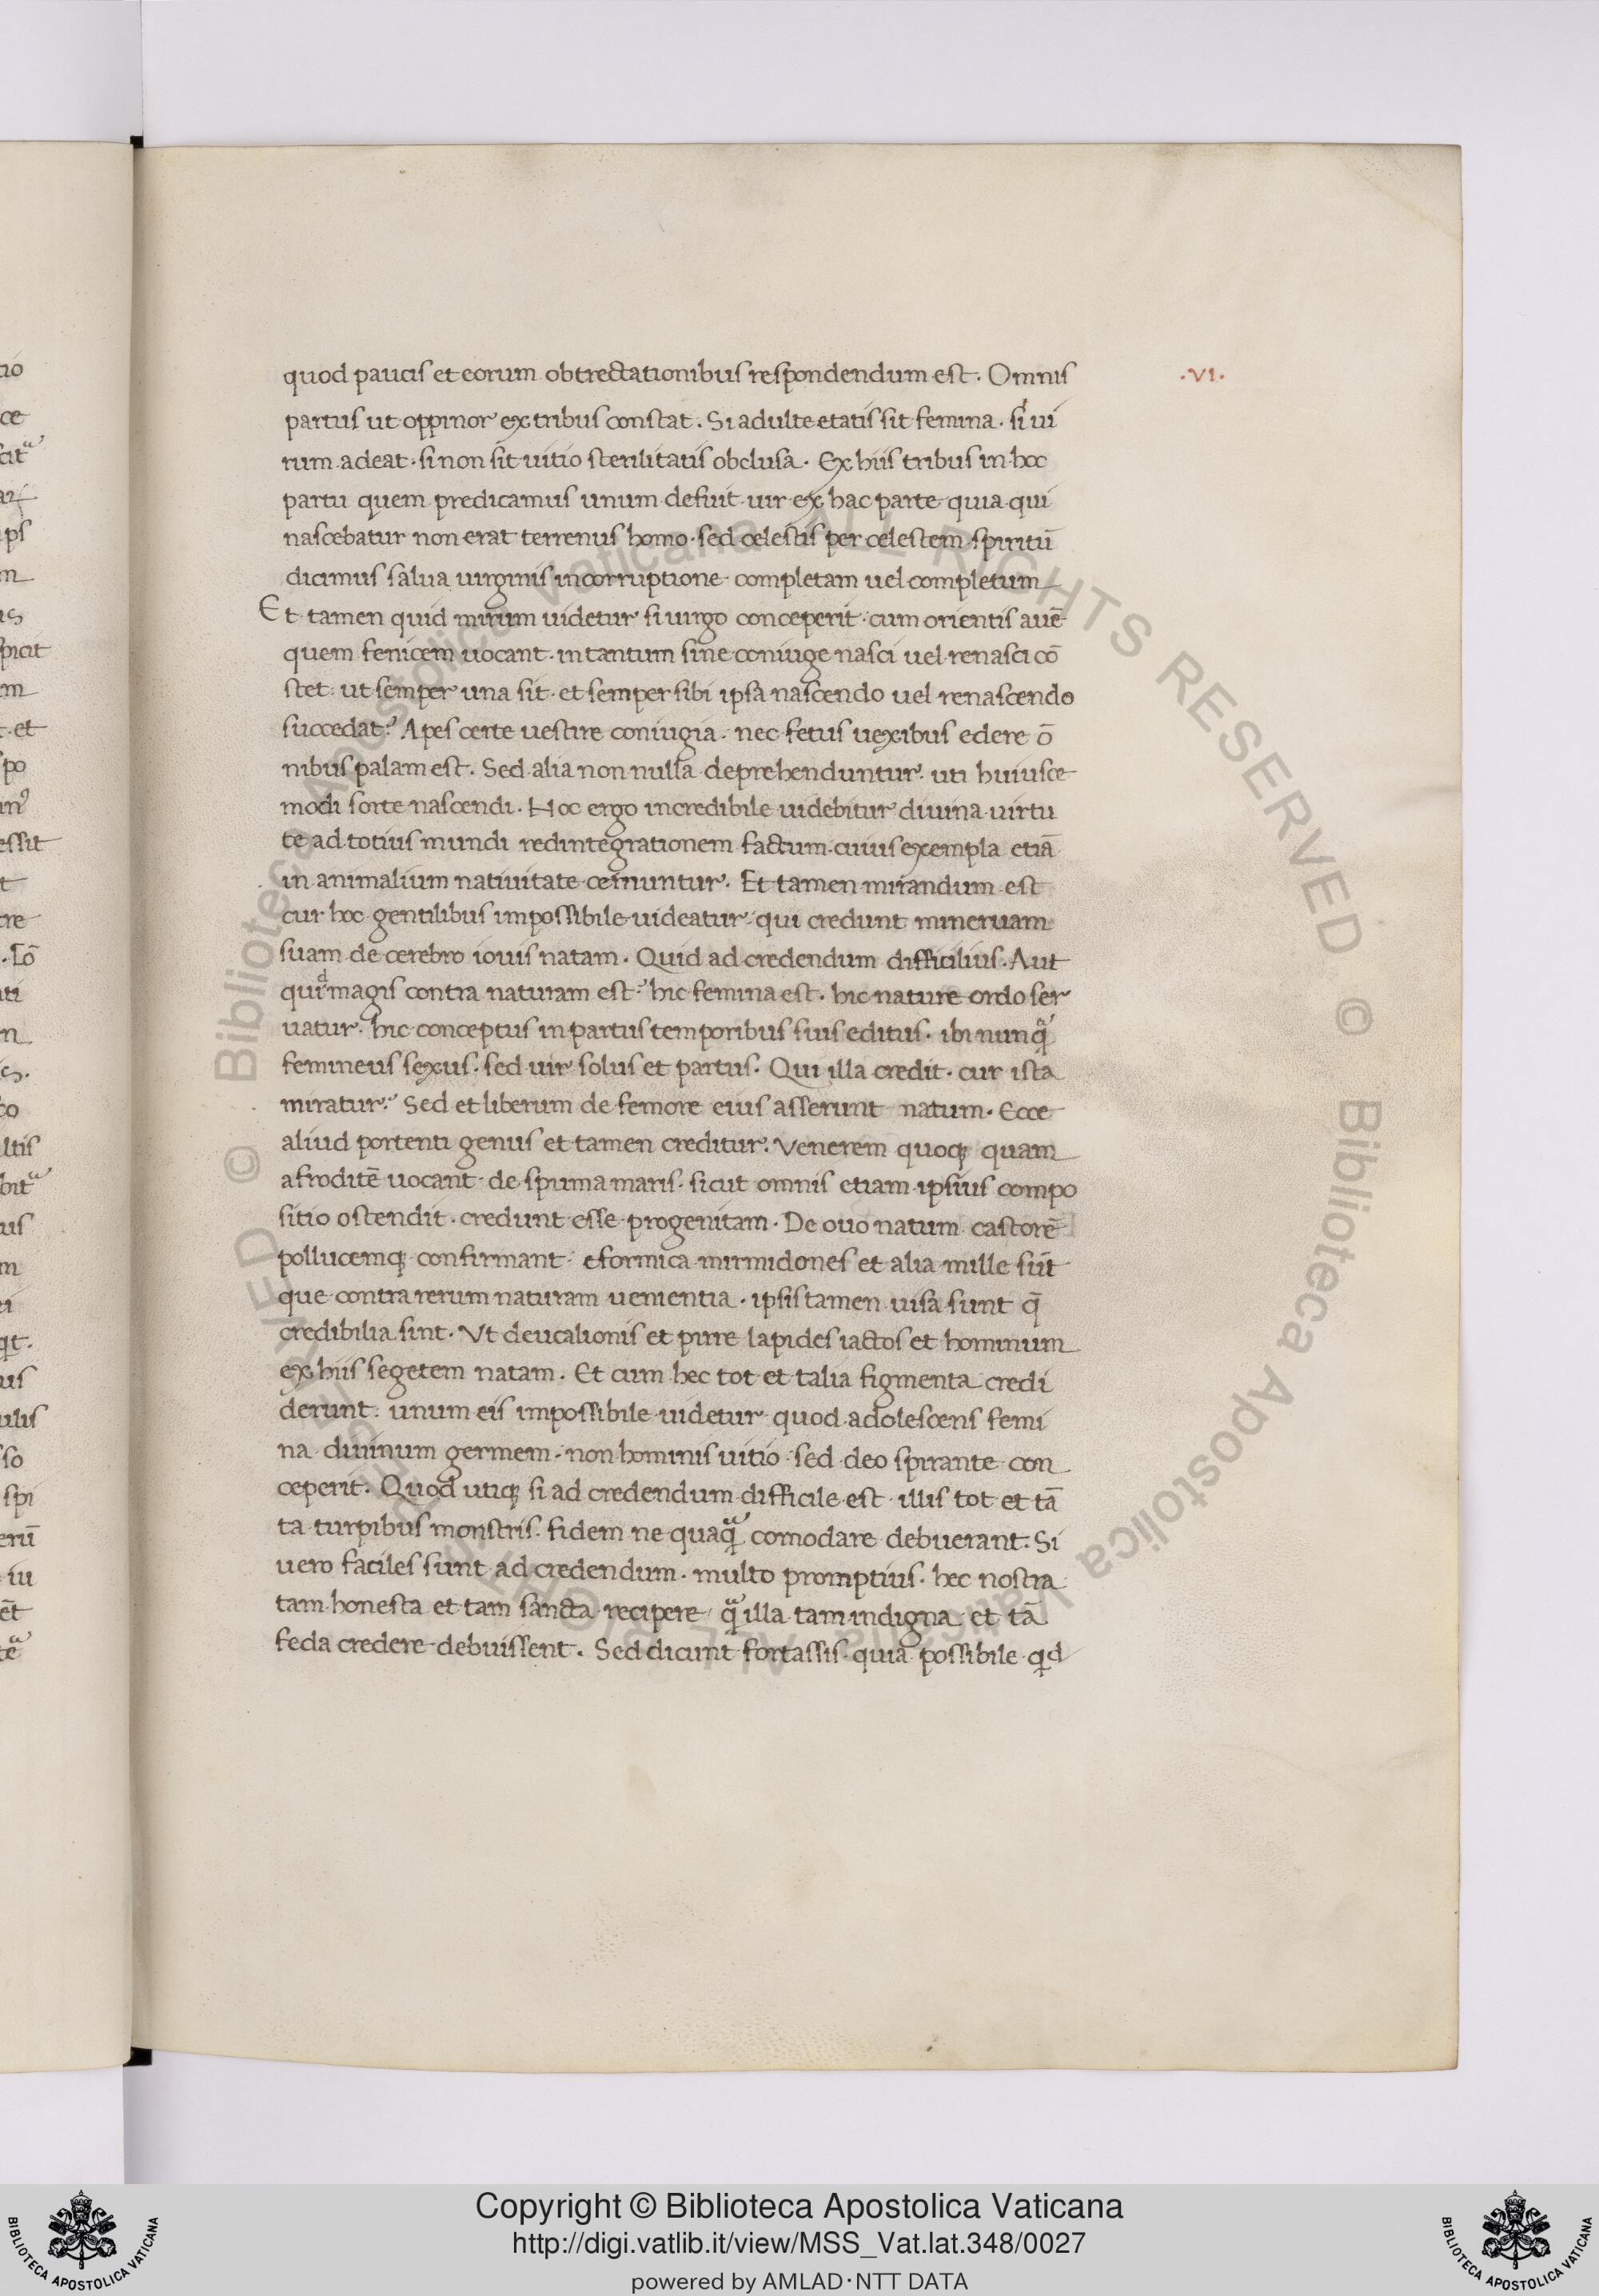 quod paucis et eorum obtrectationibus respondendum est. Omnis
.VI.
partus ut oppinor ex tribus constat. Si adulte etatis sit femina. si ui
rum adeat. si non sit uitio sterilitatis obclusa. Ex hiis tribus in hoc
partu quem predicamus unum defuit. uir. ex hac parte quia qui
nascebatur non erat terrenus homo. sed celestis per celestem spiritū
dicimus salua uirginis incorruptione completam uel completum
Et tamen quid mirum uidetur si uirgo conceperit. cum orientis auē
quem fenicem uocant. intantum sine coniuge nasci uel renasci cō
stet. ut semper una sit. et semper sibi ipsa nascendo uel renascendo
succedat? Apes certe uestire coniugia. nec fetus uexibus edere ō
nibus palam est. Sed alia non nulla deprehenduntur. uti huiusce
modi sorte nascendi. Hoc ergo incredibile uidebitur diuina uirtu
te ad totius mundi redintegrationem factum. cuius exempla etiā
in animalium natiuitate cernuntur. Et tamen mirandum est
cur hoc gentilibus impossibile uideatur. qui credunt mineruam
suam de cerebro iouis natam. Quid ad credendum difficilius. Aut
quid magis contra naturam est? hic femina est. hic nature ordo ser
uatur. hic conceptus in partus temporibus suis editus. ibi nunqᵃ
femineus sexus. sed uir solus et partus. Qui illa credit. cur ista
miratur? Sed et liberum de femore eius asserunt natum. Ecce
aliud portenti genus et tamen creditur. Venerem quoqꝫ quam
afroditē uocant. de spuma maris. sicut omnis etiam ipsius compo
sitio ostendit. credunt esse progenitam. De ouo natum castorē
pollucemqꝫ confirmant. eformica mirmidones et alia mille sūt
que contra rerum naturam uenientia. ipsis tamen uisa sunt q̄
credibilia sint. Vt deucalionis et pirre lapides iactos et hominum
ex hiis segetem natam. Et cum hec tot et talia figmenta credi
derunt. unum eis impossibile uidetur quod adolescens femi
na diuinum germem. non hominis uitio. sed deo spirante con
ceperit. Quod utiqꝫ si ad credendum difficile est. illis tot et tā
ta turpibus monstris. fidem ne quaqᵃ comodare debuerant. Si
uero faciles sunt ad credendum. multo promptius. hec nostra
tam honesta et tam sancta recipere qᵃ illa tam indigna et tā
feda credere debuissent. Sed dicunt fortassis. quia possibile qd
Copyright © Biblioteca Apostolica Vaticana
http://digi.vatlib.it/view/MSS_Vat.lat.348/0027
powered by AMLAD·NTT DATA